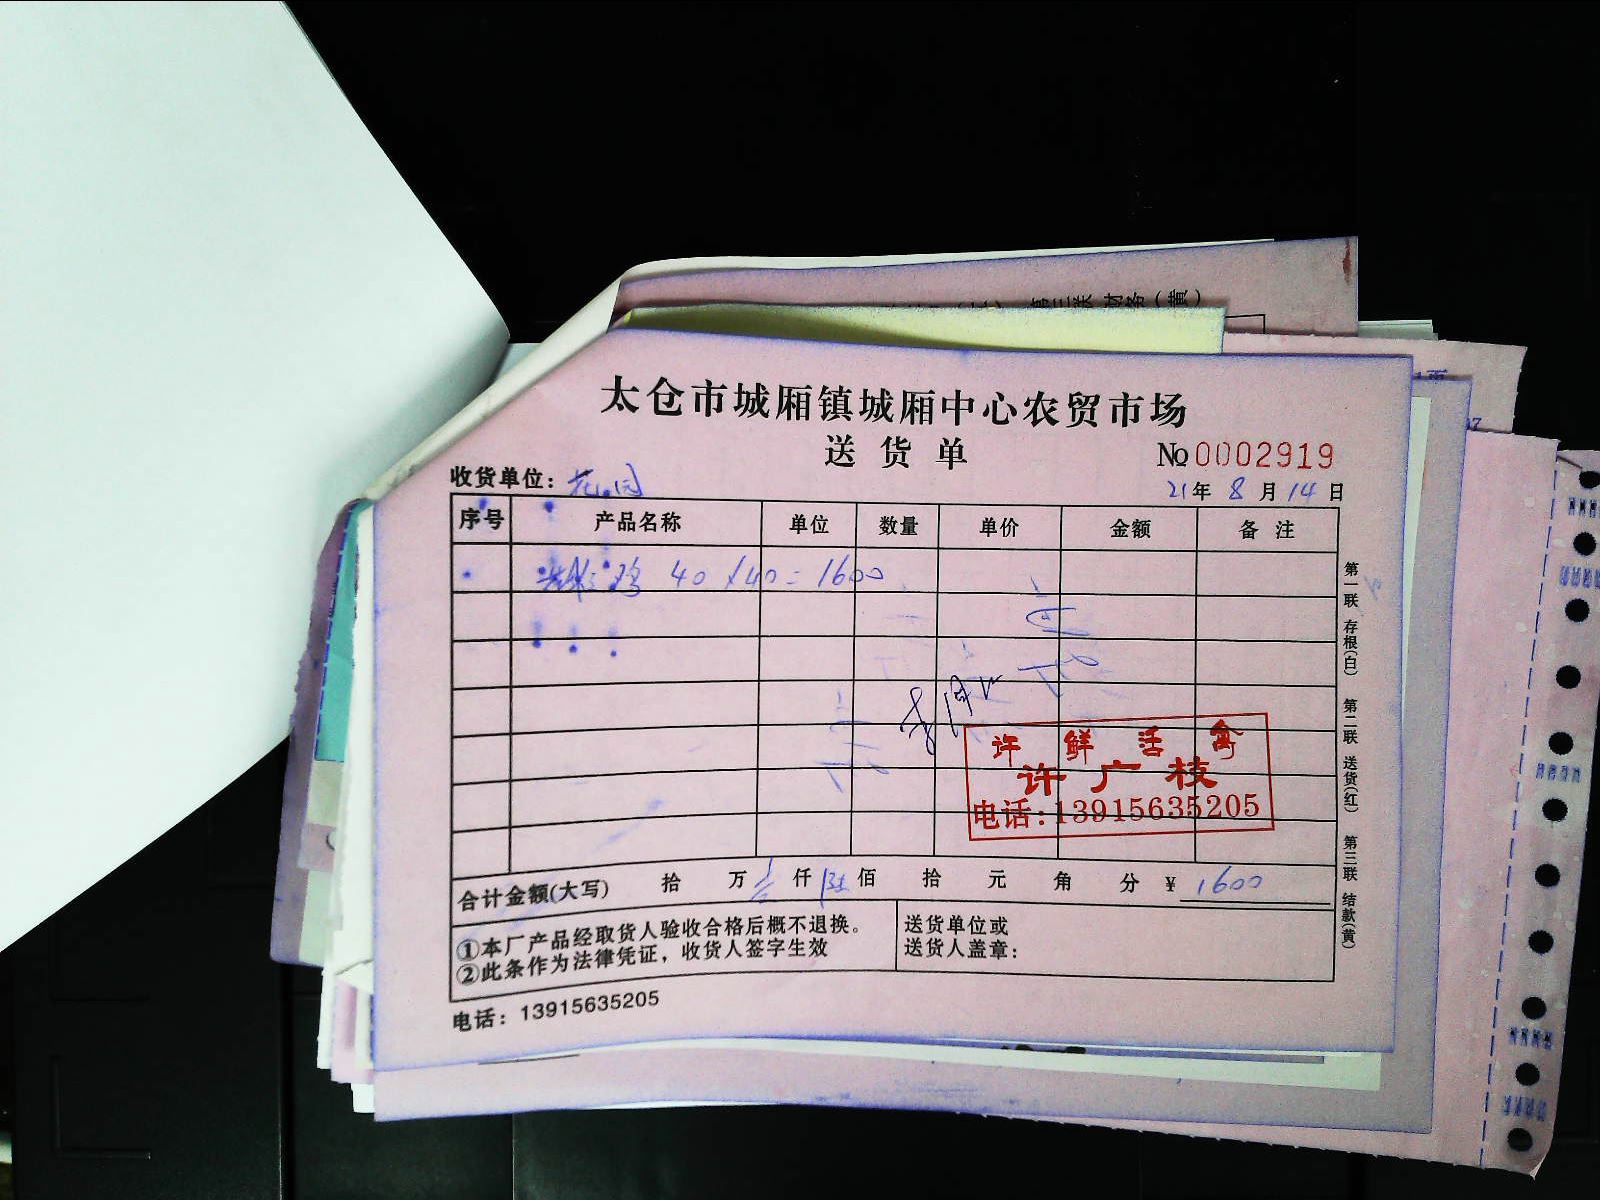 太仓市城厢镇城厢中心农贸市场
送货单
№0002919
收货单位：花园
21年8月14日
序号 产品名称 单位 数量 单价 金额 备注
鸡 40×40=1600
许鲜活禽
许广枝
电话：13915635205
合计金额(大写) 拾 万 壹仟 陆佰 拾 元 角 分 ¥ 1600
①本厂产品经取货人验收合格后概不退换。
②此条作为法律凭证，收货人签字生效
送货单位或
送货人盖章：
电话：13915635205
第一联 存根(白) 第二联 送货(红) 第三联 结款(黄)